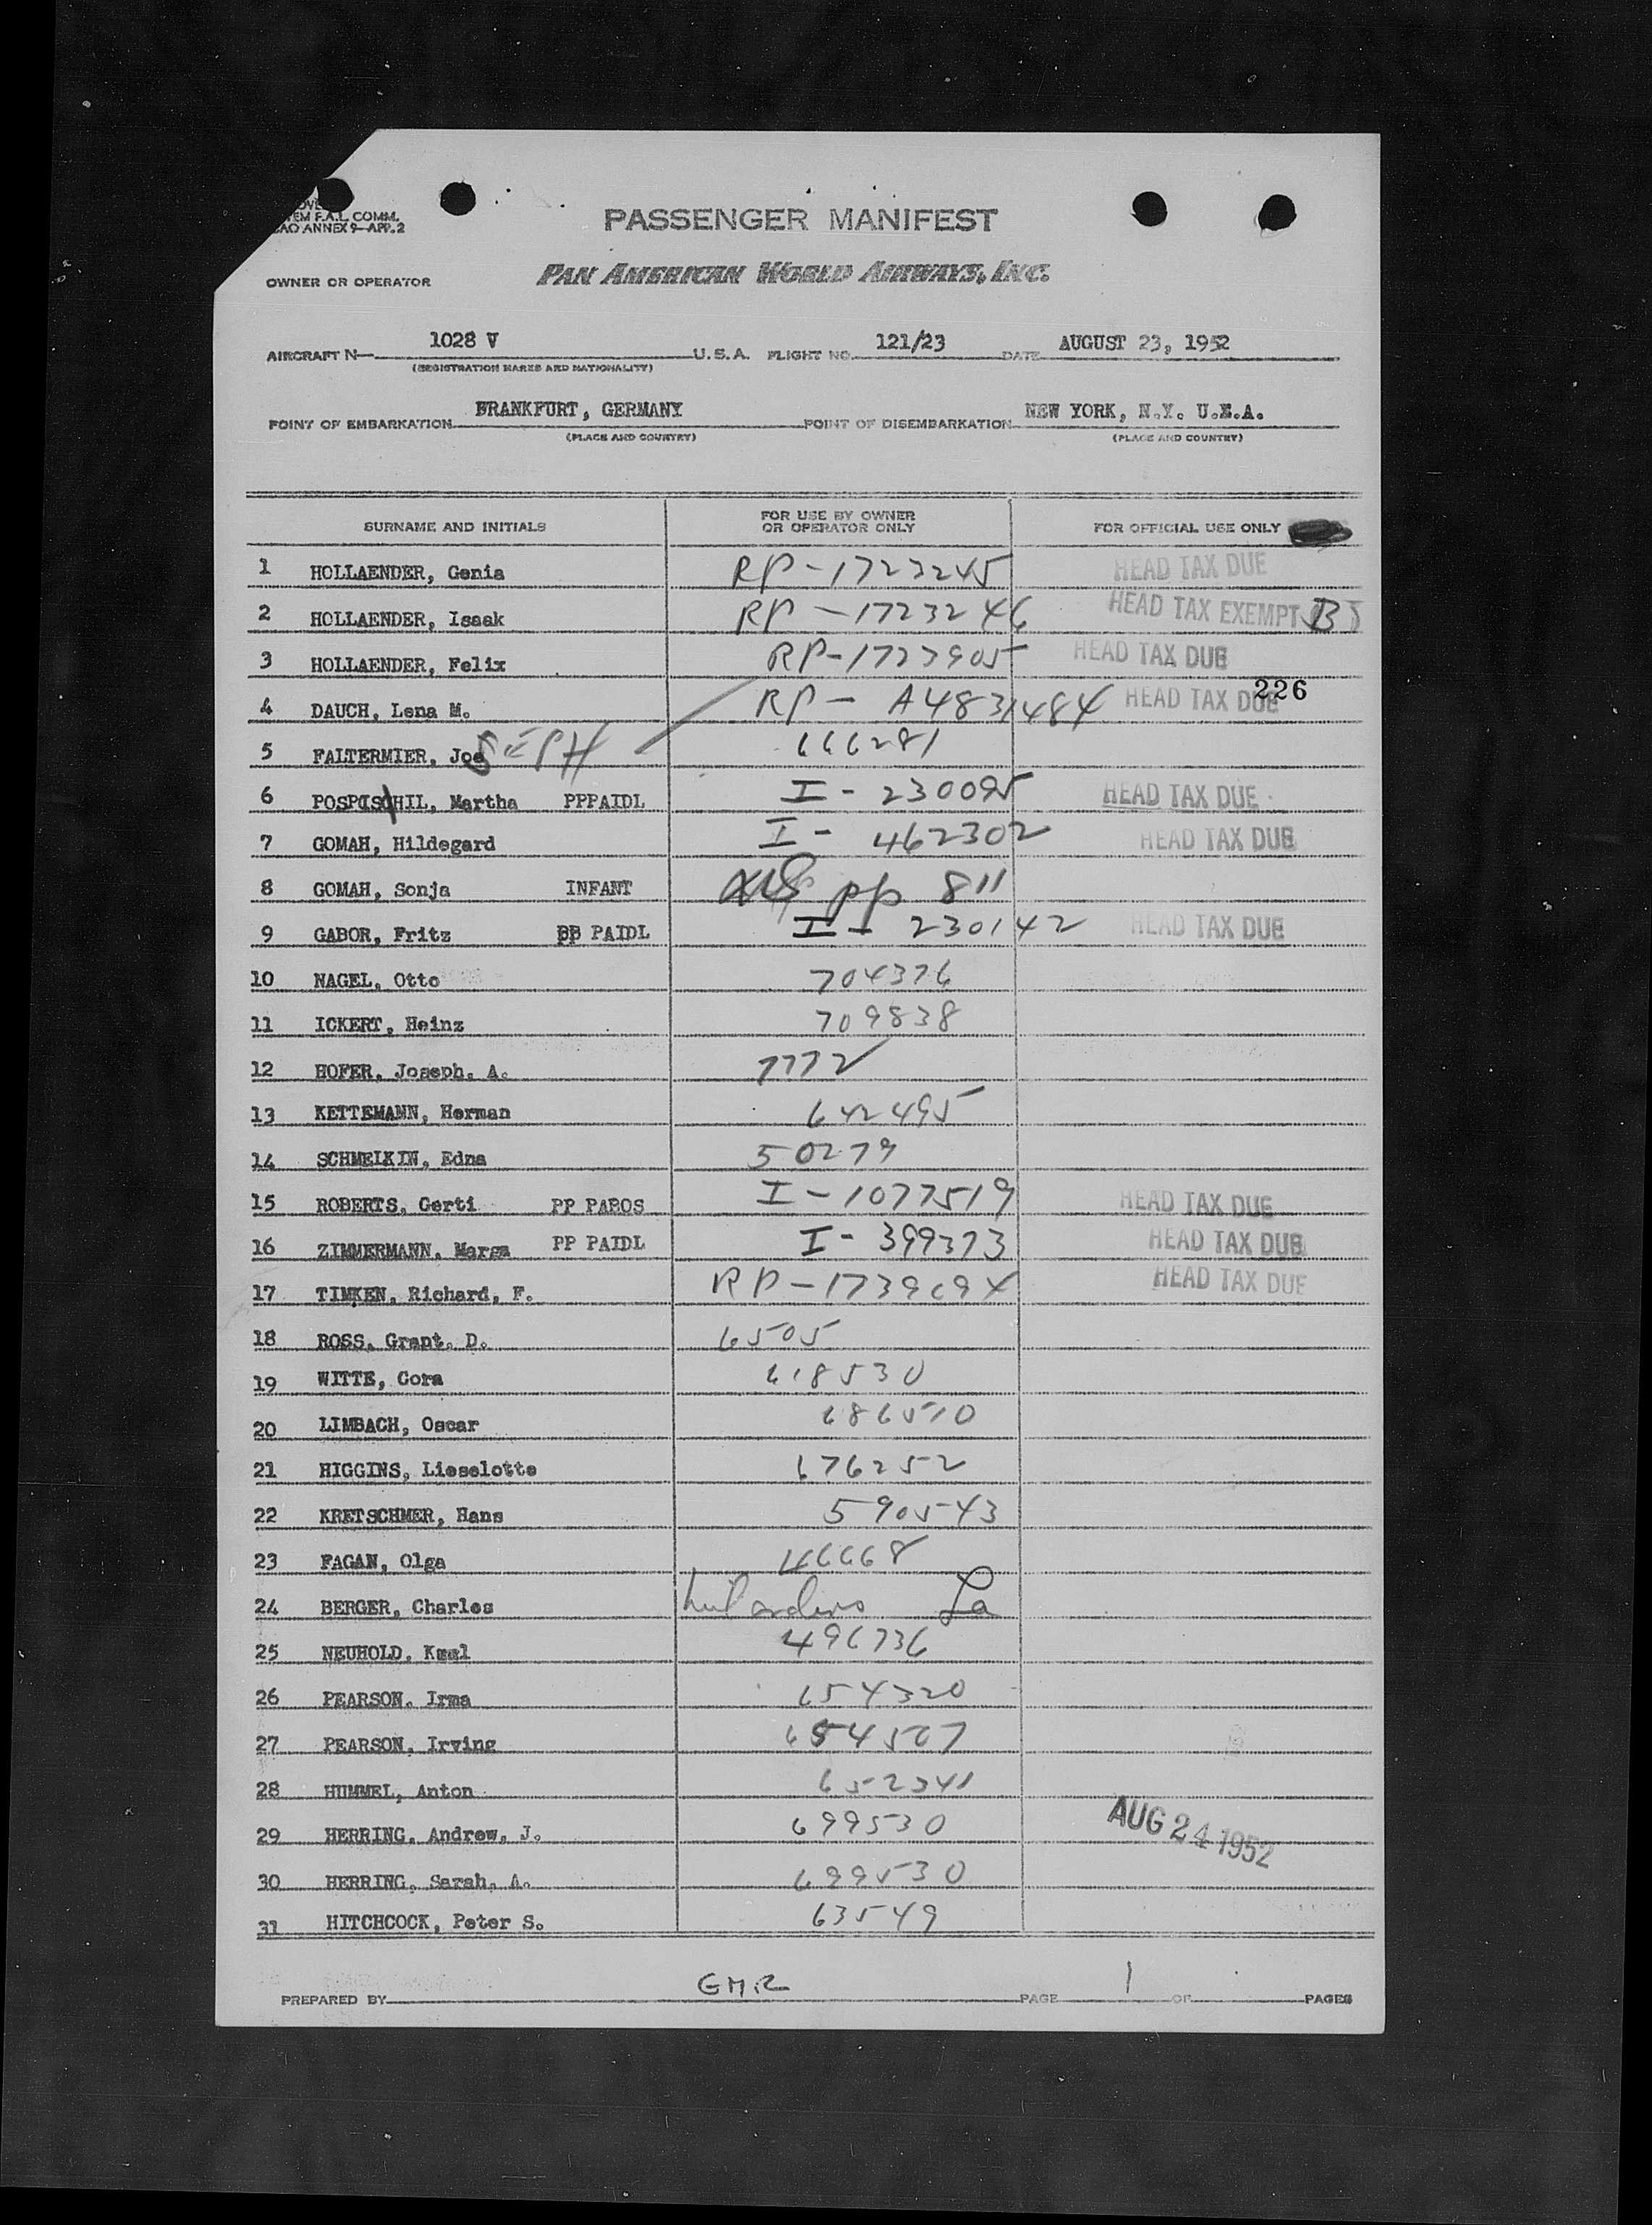 TEM F.A.L. COMM.
ANNEX 9—APP. 2
PASSENGER MANIFEST
OWNER OR OPERATOR PAN AMERICAN WORLD AIRWAYS, INC.
AIRCRAFT N— 1028 V U.S.A. FLIGHT NO. 121/23 DATE AUGUST 23, 1952
(REGISTRATION MARKS AND NATIONALITY)
POINT OF EMBARKATION FRANKFURT, GERMANY POINT OF DISEMBARKATION NEW YORK, N.Y. U.S.A.
(PLACE AND COUNTRY) (PLACE AND COUNTRY)
SURNAME AND INITIALS FOR USE BY OWNER OR OPERATOR ONLY FOR OFFICIAL USE ONLY
1 HOLLAENDER, Genia RP-1723245 HEAD TAX DUE
2 HOLLAENDER, Isaak RP-1723246 HEAD TAX EXEMPT
3 HOLLAENDER, Felix RP-1723905 HEAD TAX DUE
4 DAUCH, Lena M. RP- A4831484 HEAD TAX DUE 226
5 FALTERMIER, Joe SEPH 666281
6 POSPISCHIL, Martha PPPAIDL I-230095 HEAD TAX DUE
7 GOMAH, Hildegard I-462302 HEAD TAX DUE
8 GOMAH, Sonja INFANT pp 811
9 GABOR, Fritz PP PAIDL I-230142 HEAD TAX DUE
10 NAGEL, Otto 704376
11 ICKERT, Heinz 709838
12 HOFER, Joseph, A. 7772
13 KETTEMANN, Herman 642495
14 SCHMELKIN, Edna 50279
15 ROBERTS, Gerti PP PAROS I-1077519 HEAD TAX DUE
16 ZIMMERMANN, Marga PP PAIDL I-399373 HEAD TAX DUE
17 TIMKEN, Richard, F. RP-1739694 HEAD TAX DUE
18 ROSS, Grant, D. 6505
19 WITTE, Cora 618530
20 LIMBACH, Oscar 686510
21 HIGGINS, Lieselotte 676252
22 KRETSCHMER, Hans 590543
23 FAGAN, Olga 46668
24 BERGER, Charles
25 NEUHOLD, Karl 496736
26 PEARSON, Irma 654320
27 PEARSON, Irving 654507
28 HUMMEL, Anton 652341
29 HERRING, Andrew, J. 699530 AUG 24 1952
30 HERRING, Sarah, A. 699530
31 HITCHCOCK, Peter S. 63549
PREPARED BY GMR PAGE 1 OF PAGES